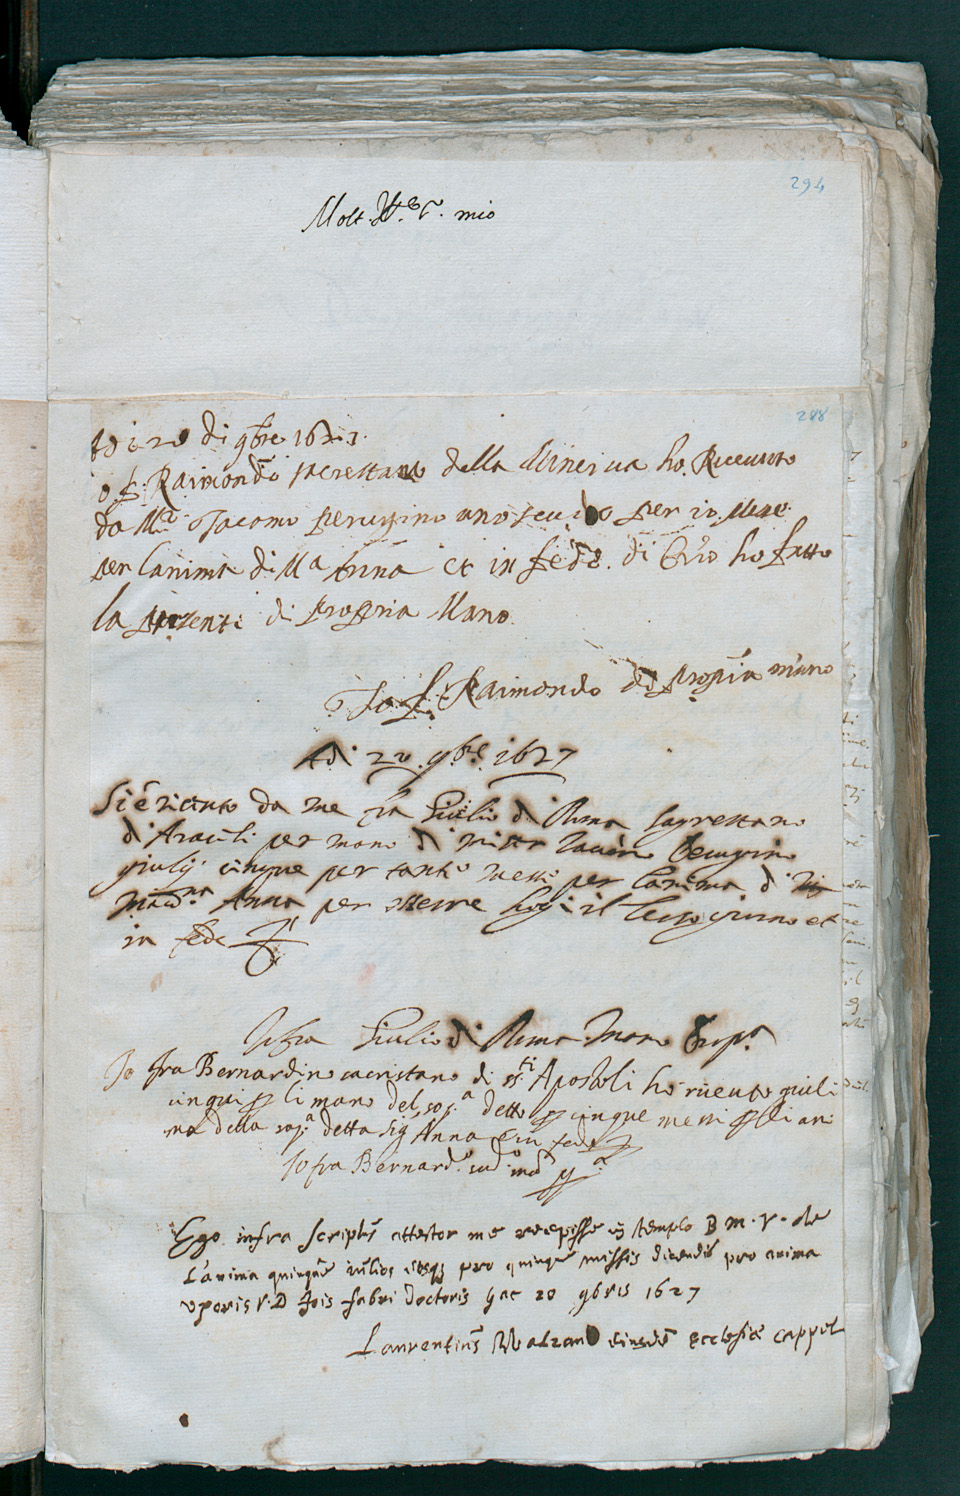 294
Molt. mio
288
di 20 di 9bre 1627.
Io f. Raimondo sacrestano della Minerva ho Riceuuto
da Mr Iacomo perugino uno scudo per 10 Messe
per lanima di Ma Anna et in fede di Cio ho fatto
la presente di propria Mano
Io f. Raimondo di propria mano
Adi 20. 9bre. 1627
Si é riceuto da me fra Giulio di Roma sagrestano
d'Araceli per mano di mister Perugino
giulij cinque per tante messe per lanima di
Anna per essere hoggi il terzo giorno et
in fede
Io fra Giulio di Roma Mano
Io fra Bernardino sacristano di ssti Apostoli ho riceuto giuli
cinqui p li mano del sop.a detto p cinque messi p li ani
ma della sop.a detta Sig Anna in fede
Io fra Bernard.o
Ego infra scriptus attestor me recepisse in templo B. M. V. de
L'anima quinque iulios pro quinque missis dicendis pro anima
uxoris r. D. Fabri Doctoris hac 20 9bris 1627
Laurentius eiusdem Ecclesiae cappel